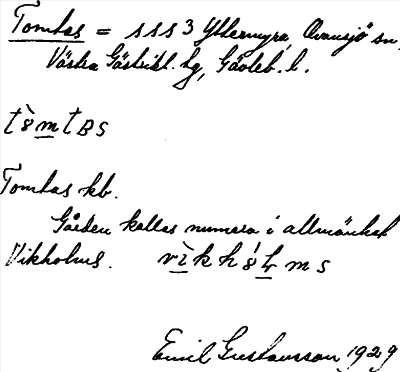 Tomtas = s s s 3 Yttermyra, Ovansjö sn,
Västra Gästrikl. hg, Gävleb. l.
Tomtas kb.
Gården kallas numera i allmänhet
Vikholms.
Emil Gustavsson 1929